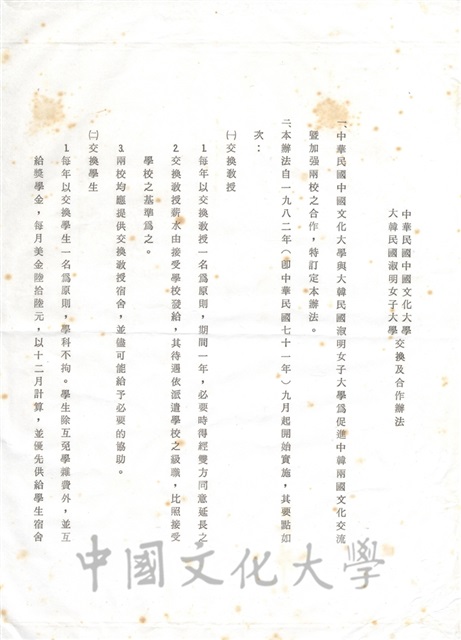 中華民國中國文化大學
大韓民國淑明女子大學
交換及合作辦法
一、中華民國中國文化大學與大韓民國淑明女子大學爲促進中韓兩國文化交流
暨加强兩校之合作，特訂定本辦法。
二、本辦法自一九八二年（卽中華民國七十一年）九月起開始實施，其要點如
次：
㈠交換教授
1.每年以交換教授一名爲原則，期間一年，必要時得經雙方同意延長之
2.交換教授薪水由接受學校發給，其待遇依派遣學校之級職，比照接受
學校之基準爲之。
3.兩校均應提供交換教授宿舍，並儘可能給予必要的協助。
㈡交換學生
1.每年以交換學生一名爲原則，學科不拘。學生除互免學雜費外，並互
給獎學金，每月美金陸拾陸元，以十二月計算，並優先供給學生宿舍
中國文化大學